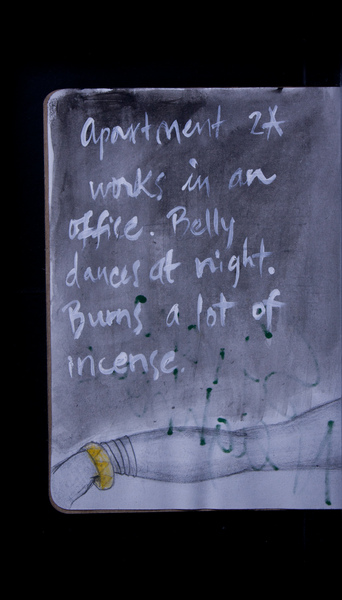 Apartment 2A
works in an
office. Belly
dances at night.
Burns a lot of
incense.